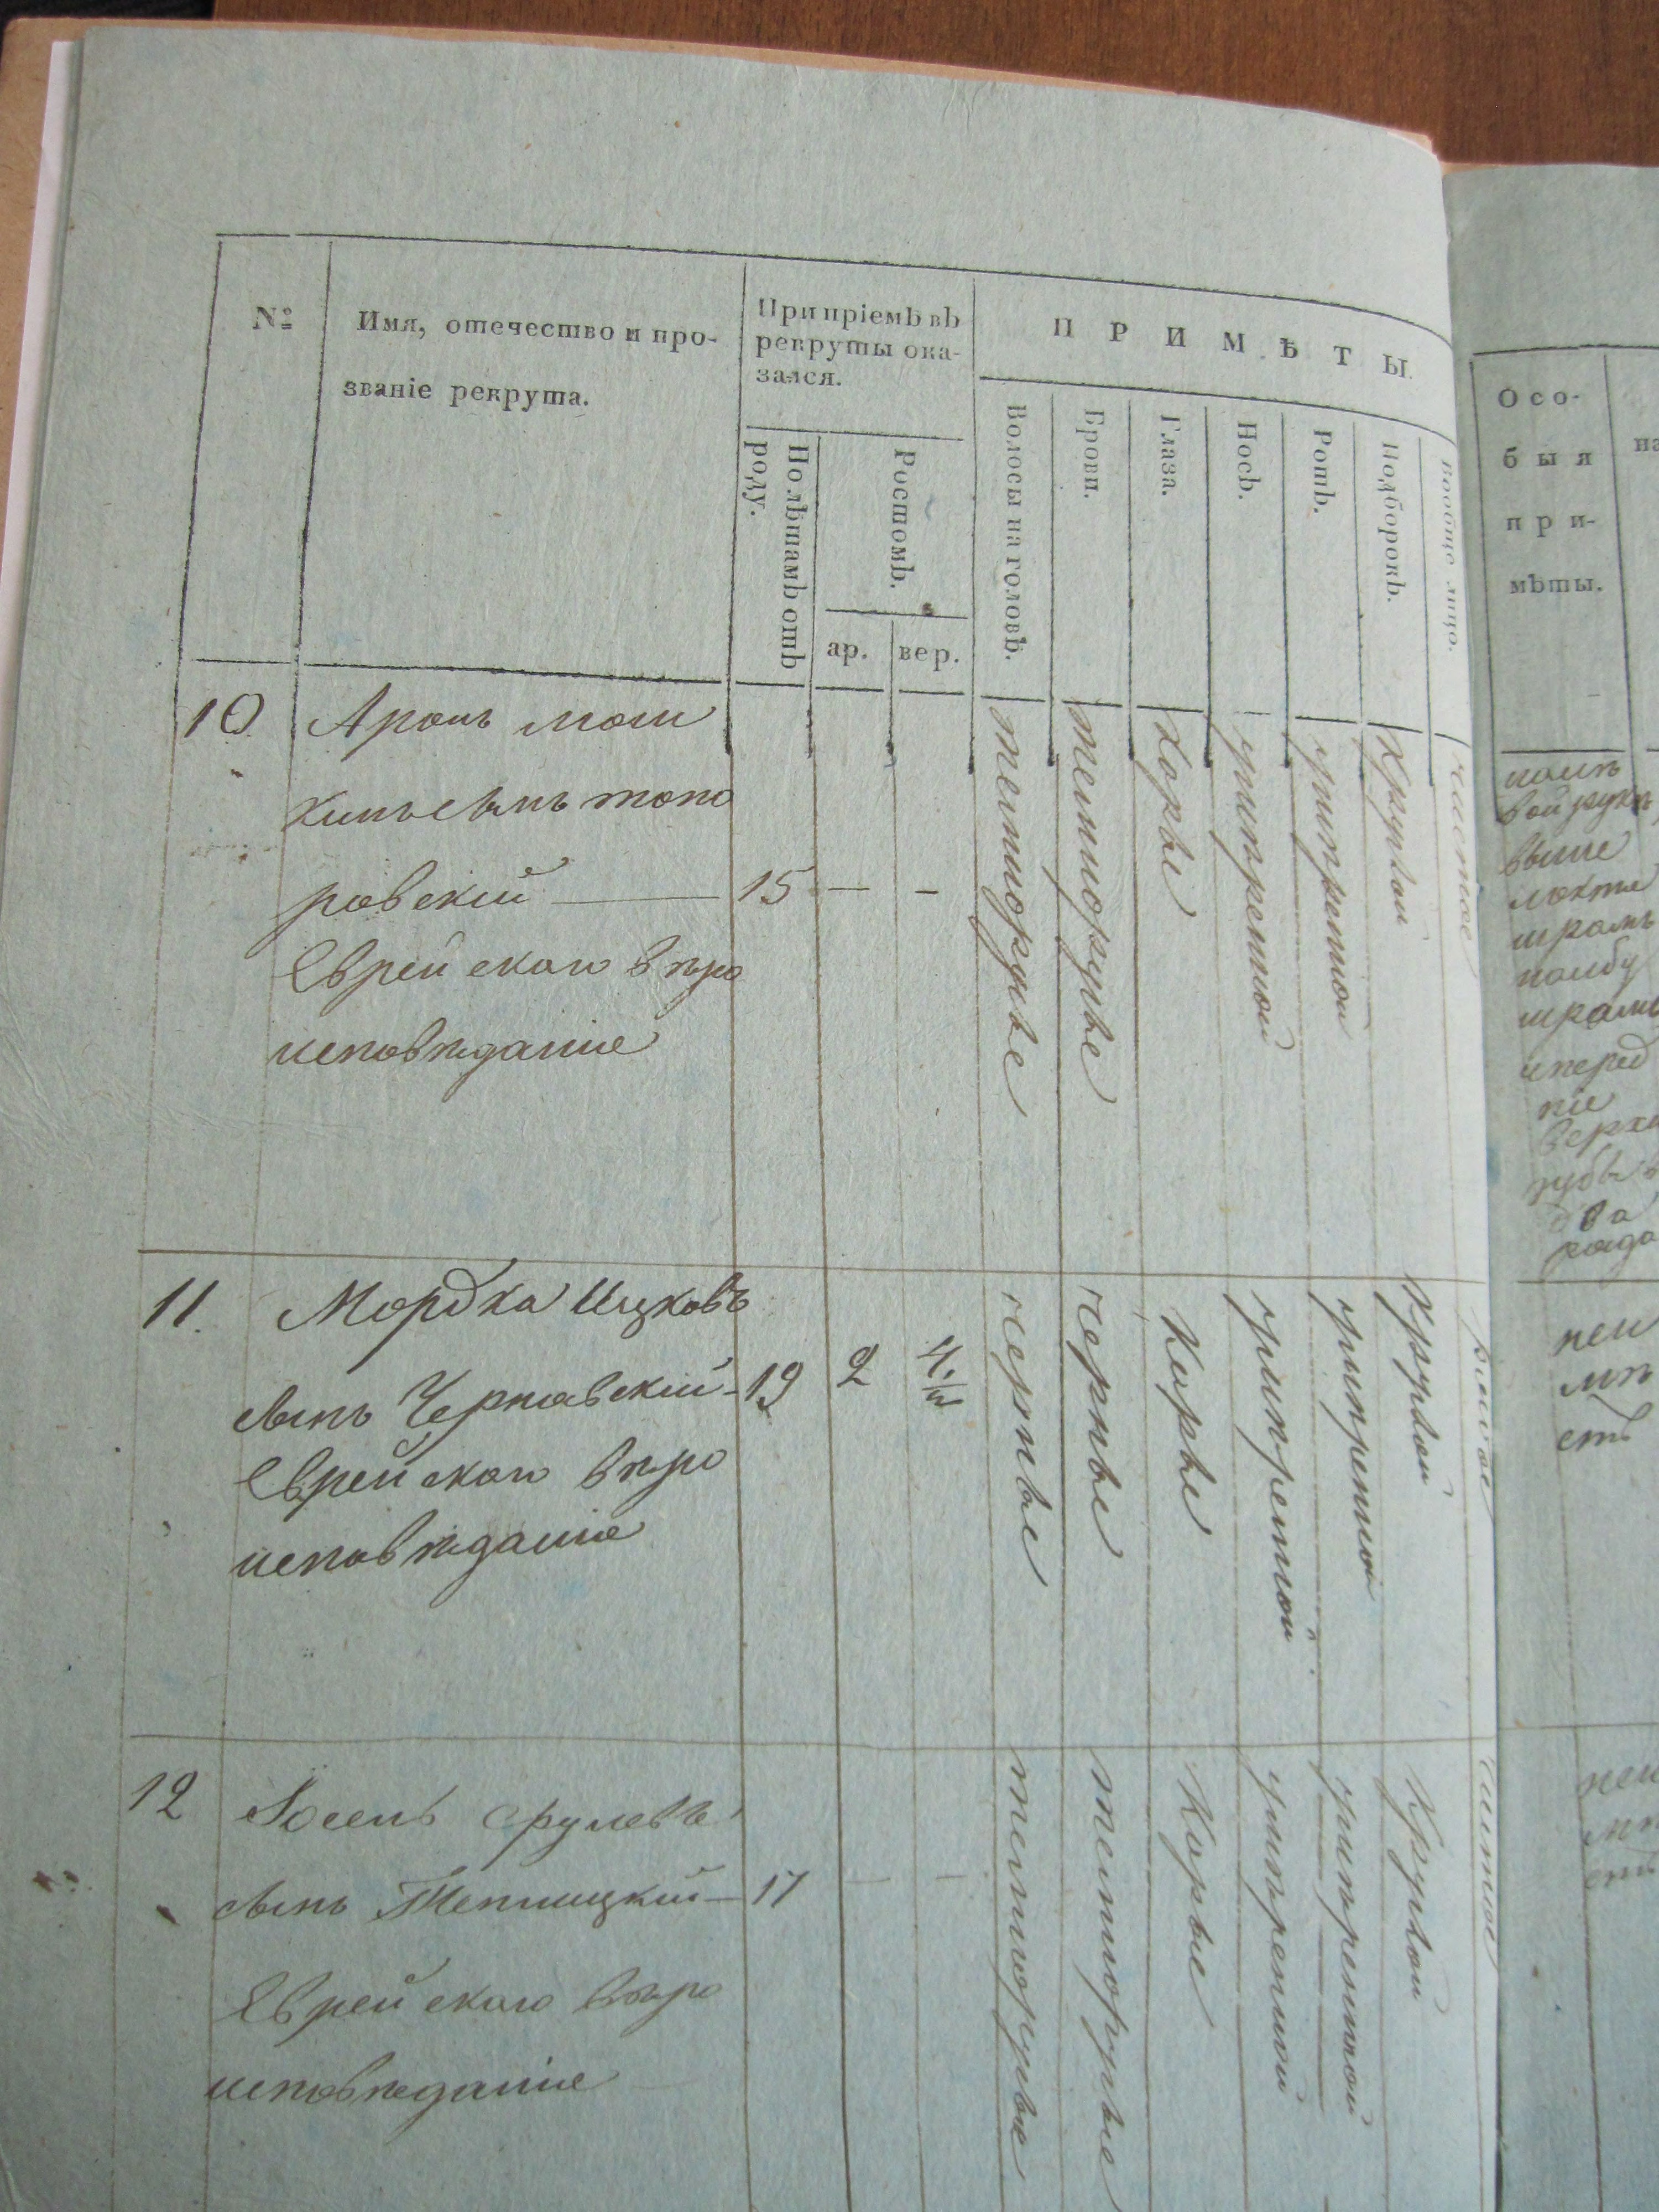 №
Имя, отечество и про-
званіе рекрута.
При пріемѣ въ
рекруты ока-
зался.
По лѣтамъ отъ
роду.
Ростомъ.
ар.
вер.
П Р И М Ѣ Т Ы.
Волосы на головѣ.
Брови.
Глаза.
Носъ.
Ротъ.
Подборокъ.
вообще лицо.
Осо-
быя
при-
мѣты.
на
10
Аронъ Мош
кинъ сынъ топо
ровскій
Еврейскаго вѣро
исповѣданіе
15 — —
темнорусые
темнорусые
Карые
умѣренной
умѣренной
Круглой
чистое
вой рукѣ
выше
локтя
шрамъ
шрамъ
перед
ніе
верхн
зубы в
два
ряда
11.
Мордка Ицковъ
сынъ Чернавскій
Еврейскаго вѣро
исповѣданіе
19 2 4.
черные
черные
Карые
умѣренной
умѣренной
Круглой
неи
мѣ
етъ
12
Іосель Срулевъ
сынъ Теплицкій
Еврейскаго вѣро
исповѣданіе
17 — —
темнорусые
темнорусые
Карые
умѣренной
умѣренной
Круглой
чистое
неи
мѣ
етъ